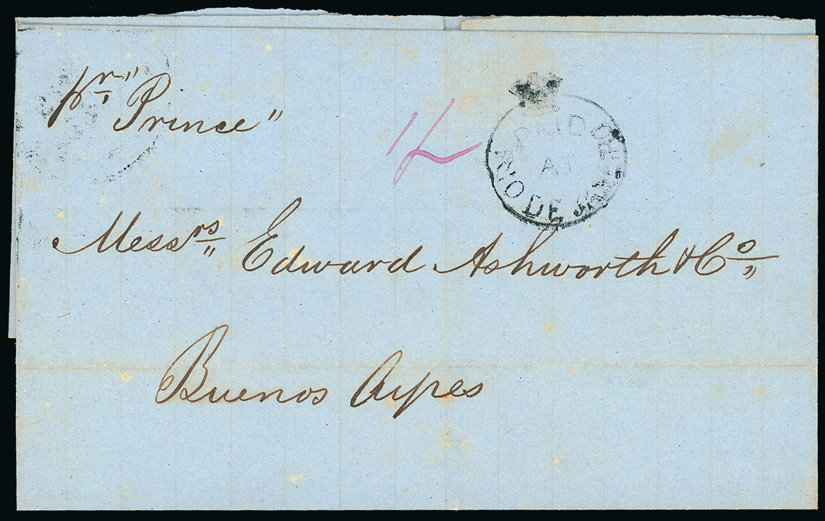 pr "Prince"
1/-
PAID AT RIO DE JANEIRO
Messrs Edward Ashworth & Co
Buenos Ayres